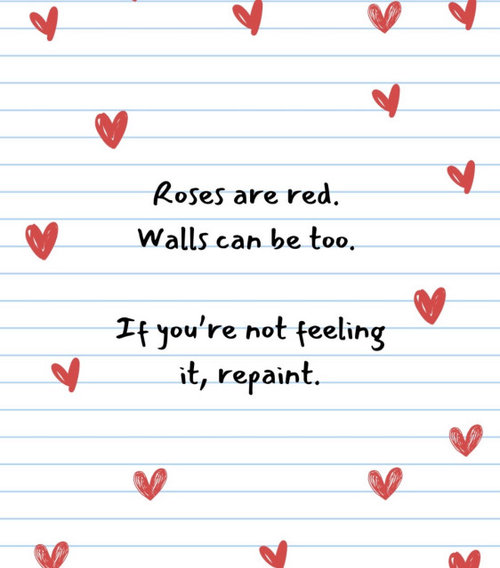 Roses are red.
Walls can be too.
If you're not feeling
it, repaint.